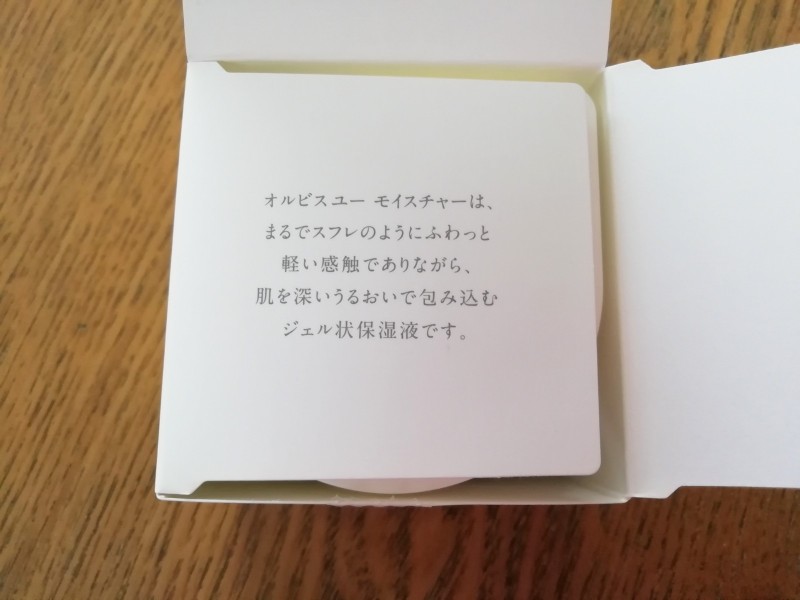 オルビスユー モイスチャーは、
まるでスフレのようにふわっと
軽い感触でありながら、
肌を深いうるおいで包み込む
ジェル状保湿液です。